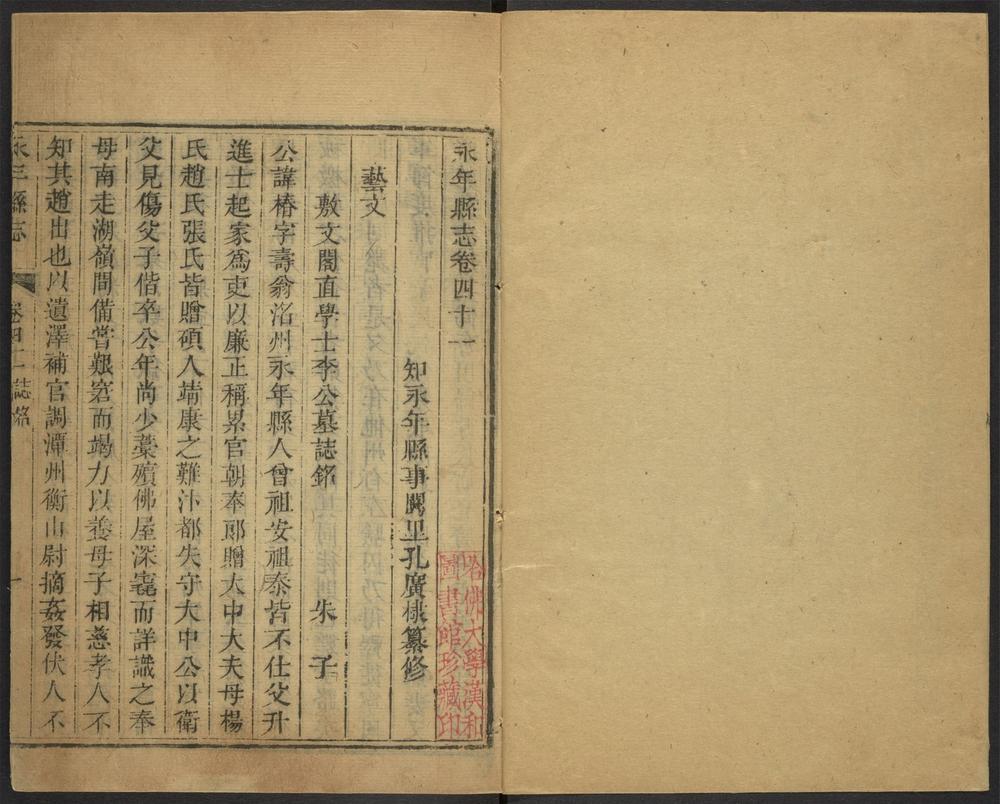 永年縣志卷四十一
知永年縣事闕里孔廣棣纂修
藝文
敷文閣直學士李公墓誌銘 朱子
公諱椿字壽翁洺州永年縣人曾祖安祖泰皆不仕父升
進士起家爲吏以廉正稱累官朝奉郎贈大中大夫母楊
氏趙氏張氏皆贈碩人靖康之難汴都失守大中公以衛
父見傷父子偕卒公年尚少藁殯佛屋深窆而詳識之奉
母南走湖嶺間備嘗艱窘而竭力以養母子相慈孝人不
知其趙出也以遺澤補官調潭州衡山尉摘姦發伏人不
永年縣志
卷四十一誌銘
一
哈佛大學漢和
圖書館珍藏印